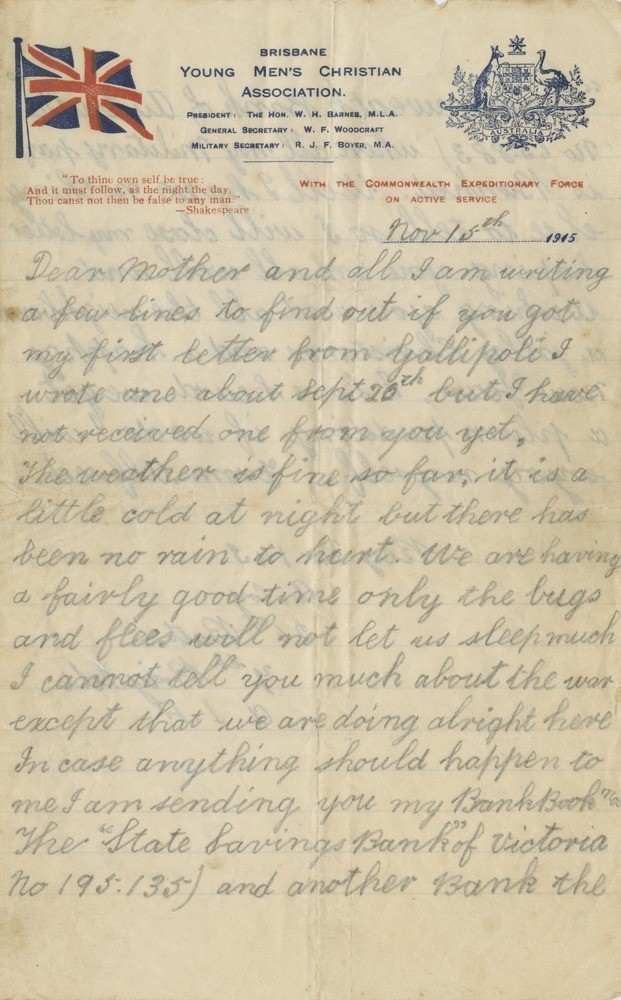 BRISBANE
YOUNG MEN'S CHRISTIAN
ASSOCIATION.
PRESIDENT: THE HON. W. H. BARNES, M.L.A.
GENERAL SECRETARY: W. F. WOODCRAFT
MILITARY SECRETARY: R. J. F. BOYER, M.A.
AUSTRALIA
"To thine own self be true;
And it must follow, as the night the day,
Thou canst not then be false to any man"
—Shakespeare
WITH THE COMMONWEALTH EXPEDITIONARY FORCE
ON ACTIVE SERVICE
Nov 15th 1915
Dear Mother and all I am writing
a few lines to find out if you got
my first letter from Gallipoli I
wrote one about Sept 20th but I have
not received one from you yet,
The weather is fine so far, it is a
little cold at night but there has
been no rain to hurt. We are having
a fairly good time only the bugs
and flees will not let us sleep much
I cannot tell you much about the war
except that we are doing alright here
In case anything should happen to
me I am sending you my Bank Book
The "State Savings Bank" of Victoria
No 195.135) and another Bank the